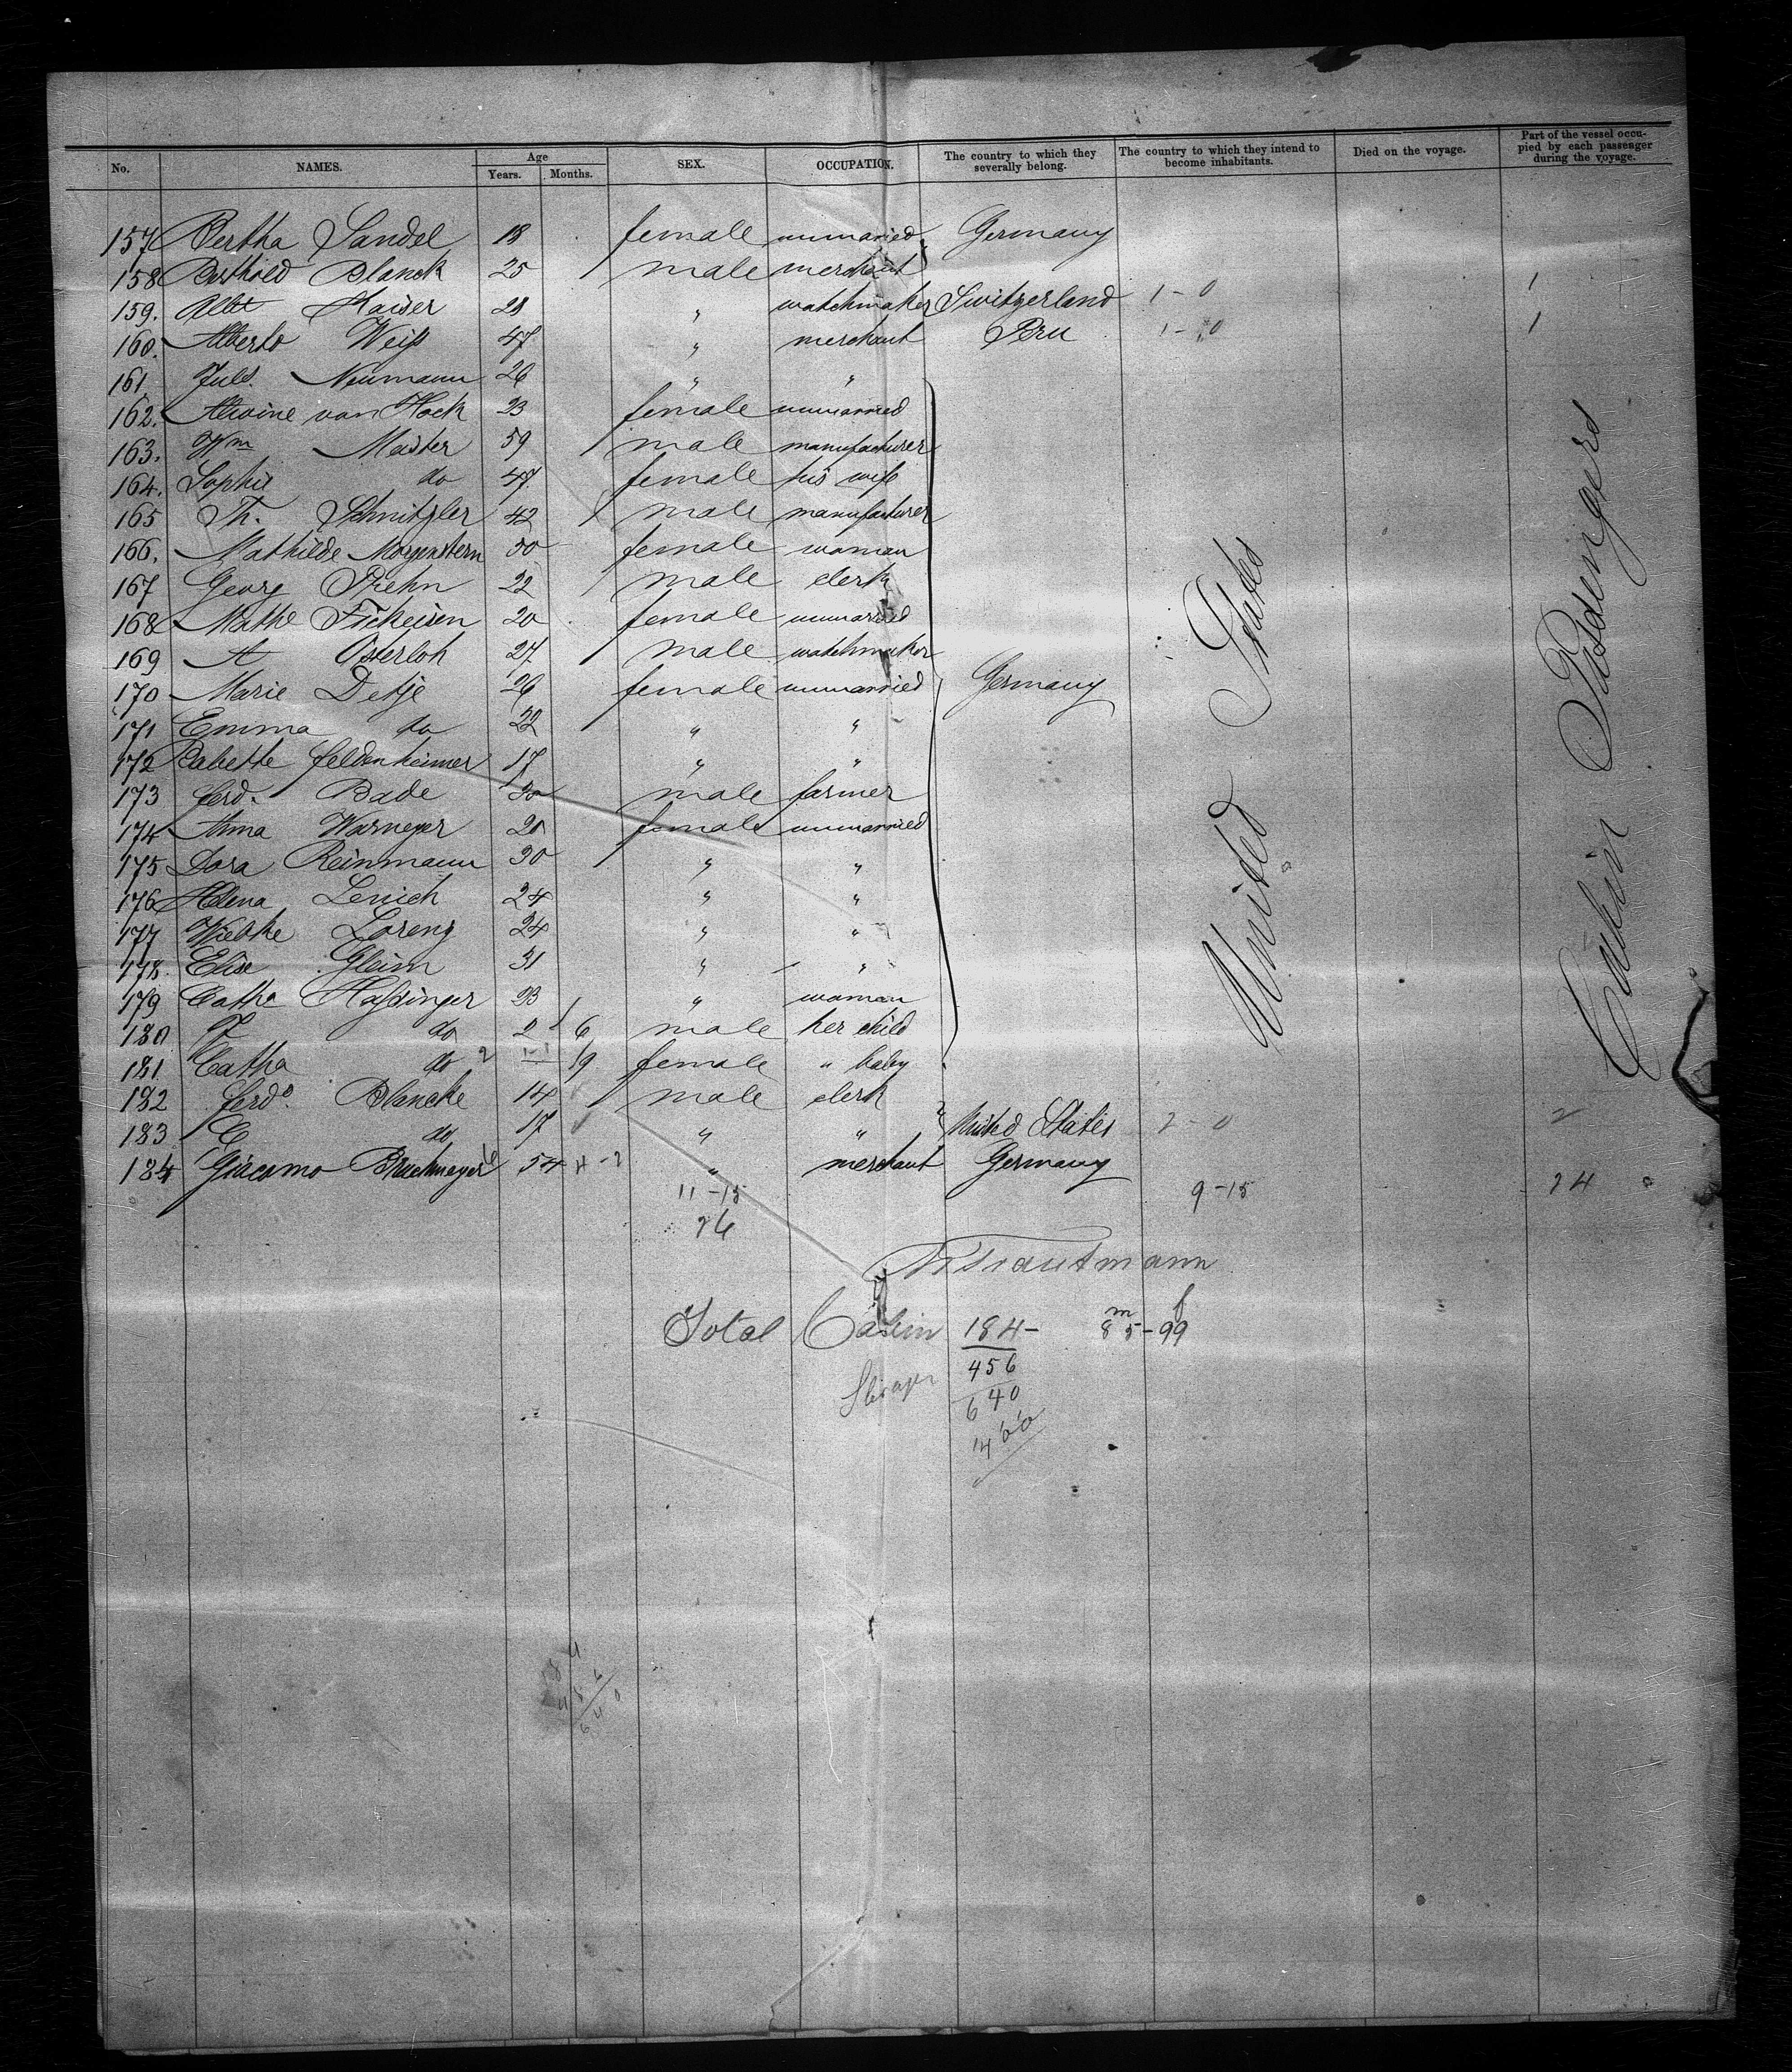 No. NAMES. Age Years. Months. SEX. OCCUPATION. The country to which they severally belong. The country to which they intend to become inhabitants. Died on the voyage. Part of the vessel occupied by each passenger during the voyage.
157 Bertha Sandel 18 female unmaried Germany
158 Berthold Blanck 25 male merchant
159. Kaiser 28 " watchmaker Switzerland 1-0 1
160. Alberto Weiß 47 " merchant Peru 1-0 1
161 Juls. Neumann 26 " "
162. Alwine van Hock 23 female unmarried
163. Wm Master 59 male manufacturer
164. Sophie do 47 female his wife
165 Th. Schnitzler 42 male manufacturer
166. Mathilde Morgenstern 50 female woman
167 Georg Prehn 22 male clerk
168 Mathe Fickeisen 20 female unmarried
169 A Osterloh 27 male watchmaker
170 Marie Detje 26 female unmarried Germany
171 Emma do 22 " "
172 Babette Feldenheimer 17 " "
173 Ferd. Bade 30 male farmer
174 Anna Warneyer 20 female unmarried
175 Dora Reinmann 30 " "
176 Helena Lenich 24 " "
177 Wiebke Lorenz 24 " "
178. Elise Gleim 31 " "
179 Catha Haßinger 23 " woman
180 F do 2 6 male her child
181 Catha do 2 9 female " baby
182 Ferdo. Blancke 14 male clerk
183 C do 17 " " United States 2-0 2
184 Giacomo Brachmeyer 54 4-2 " merchant Germany
United States
Cabin Passengers
11-15 9-15 24
26
Trautmann
Total Cabin 184- m 85- f 99
Steerage 456
640